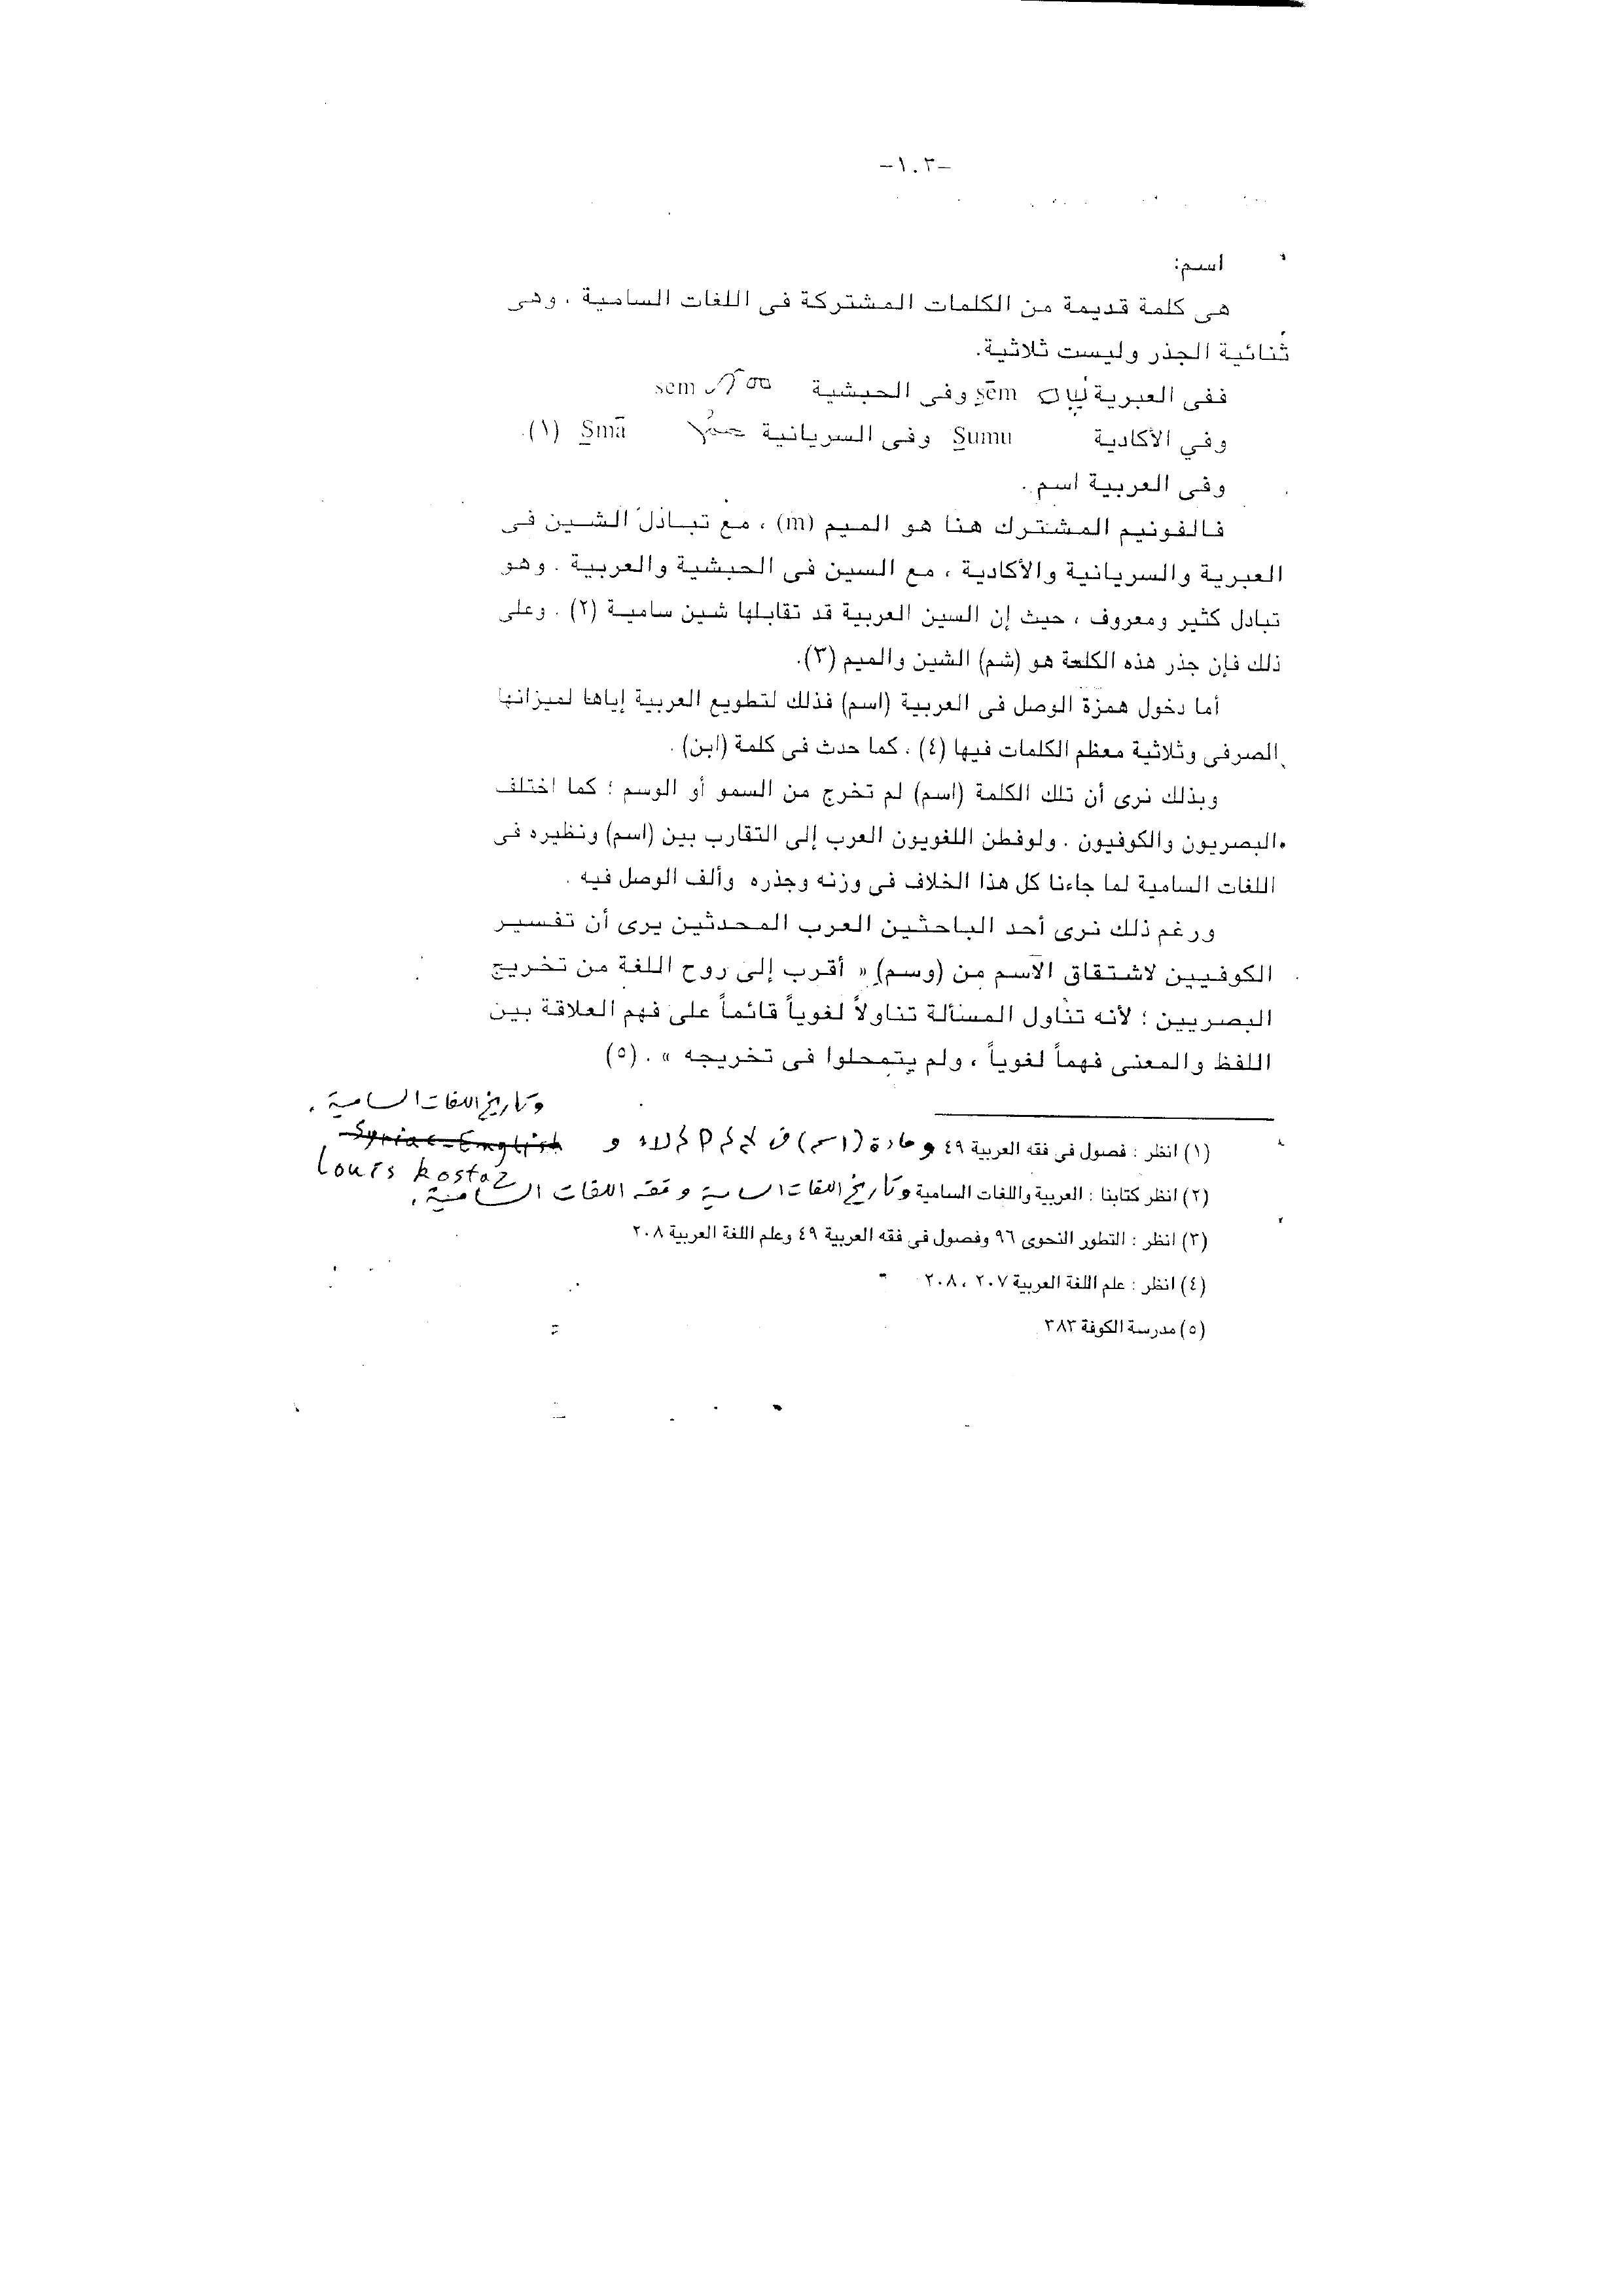 -١٠٣-
اسم:
هى كلمة قديمة من الكلمات المشتركة فى اللغات السامية ، وهى
ثنائية الجذر وليست ثلاثية.
ففى العبرية šēm وفى الحبشية sem
وفي الأكادية Šumu وفى السريانية Šmā (١).
وفى العربية اسم .
فالفونيم المشترك هنا هو الميم (m) ، مع تبادل الشين فى
العبرية والسريانية والأكادية ، مع السين فى الحبشية والعربية . وهو
تبادل كثير ومعروف ، حيث إن السين العربية قد تقابلها شين سامية (٢) . وعلى
ذلك فإن جذر هذه الكلمة هو (شم) الشين والميم (٣).
أما دخول همزة الوصل فى العربية (اسم) فذلك لتطويع العربية إياها لميزانها
الصرفى وثلاثية معظم الكلمات فيها (٤) ، كما حدث فى كلمة (ابن) .
وبذلك نرى أن تلك الكلمة (اسم) لم تخرج من السمو أو الوسم ؛ كما اختلف
البصريون والكوفيون . ولوفطن اللغويون العرب إلى التقارب بين (اسم) ونظيره فى
اللغات السامية لما جاءنا كل هذا الخلاف فى وزنه وجذره وألف الوصل فيه .
ورغم ذلك نرى أحد الباحثين العرب المحدثين يرى أن تفسير
الكوفيين لاشتقاق الاسم من (وسم) « أقرب إلى روح اللغة من تخريج
البصريين ؛ لأنه تناول المسألة تناولاً لغوياً قائماً على فهم العلاقة بين
اللفظ والمعنى فهماً لغوياً ، ولم يتمحلوا فى تخريجه » . (٥)
وتاريخ اللغات السامية .
(١) انظر : فصول فى فقه العربية ٤٩ ومادة (اسم) فى و Syriac-English
louis kostaz
(٢) انظر كتابنا : العربية واللغات السامية وتاريخ اللغات السامية وفقه اللغات السامية .
(٣) انظر : التطور النحوى ٩٦ وفصول فى فقه العربية ٤٩ وعلم اللغة العربية ٢٠٨
(٤) انظر : علم اللغة العربية ٢٠٧ ، ٢٠٨
(٥) مدرسة الكوفة ٣٨٣